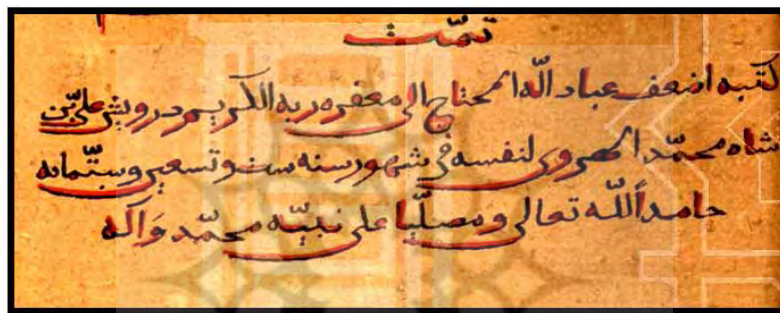 تمّت
كتبه اضعف عباد الله المحتاج الى مغفره ربه الكريم درويش على بن
شاه محمّد الهروى لنفسه فى شهور سنه ست و تسعين و ستّمائه
حامداً لله تعالى و مصلّيا على نبيّه محمّد و آله